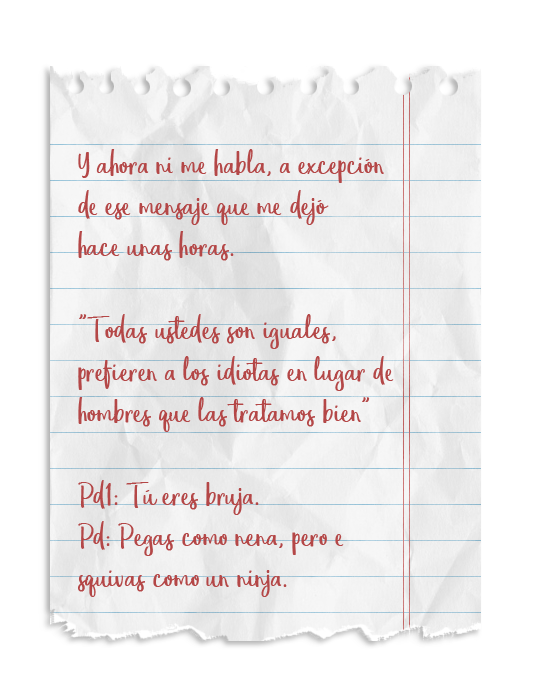 Y ahora ni me habla, a excepción
de ese mensaje que me dejó
hace unas horas.
"Todas ustedes son iguales,
prefieren a los idiotas en lugar de
hombres que las tratamos bien"
Pd1: Tú eres bruja.
Pd: Pegas como nena, pero e
squivas como un ninja.